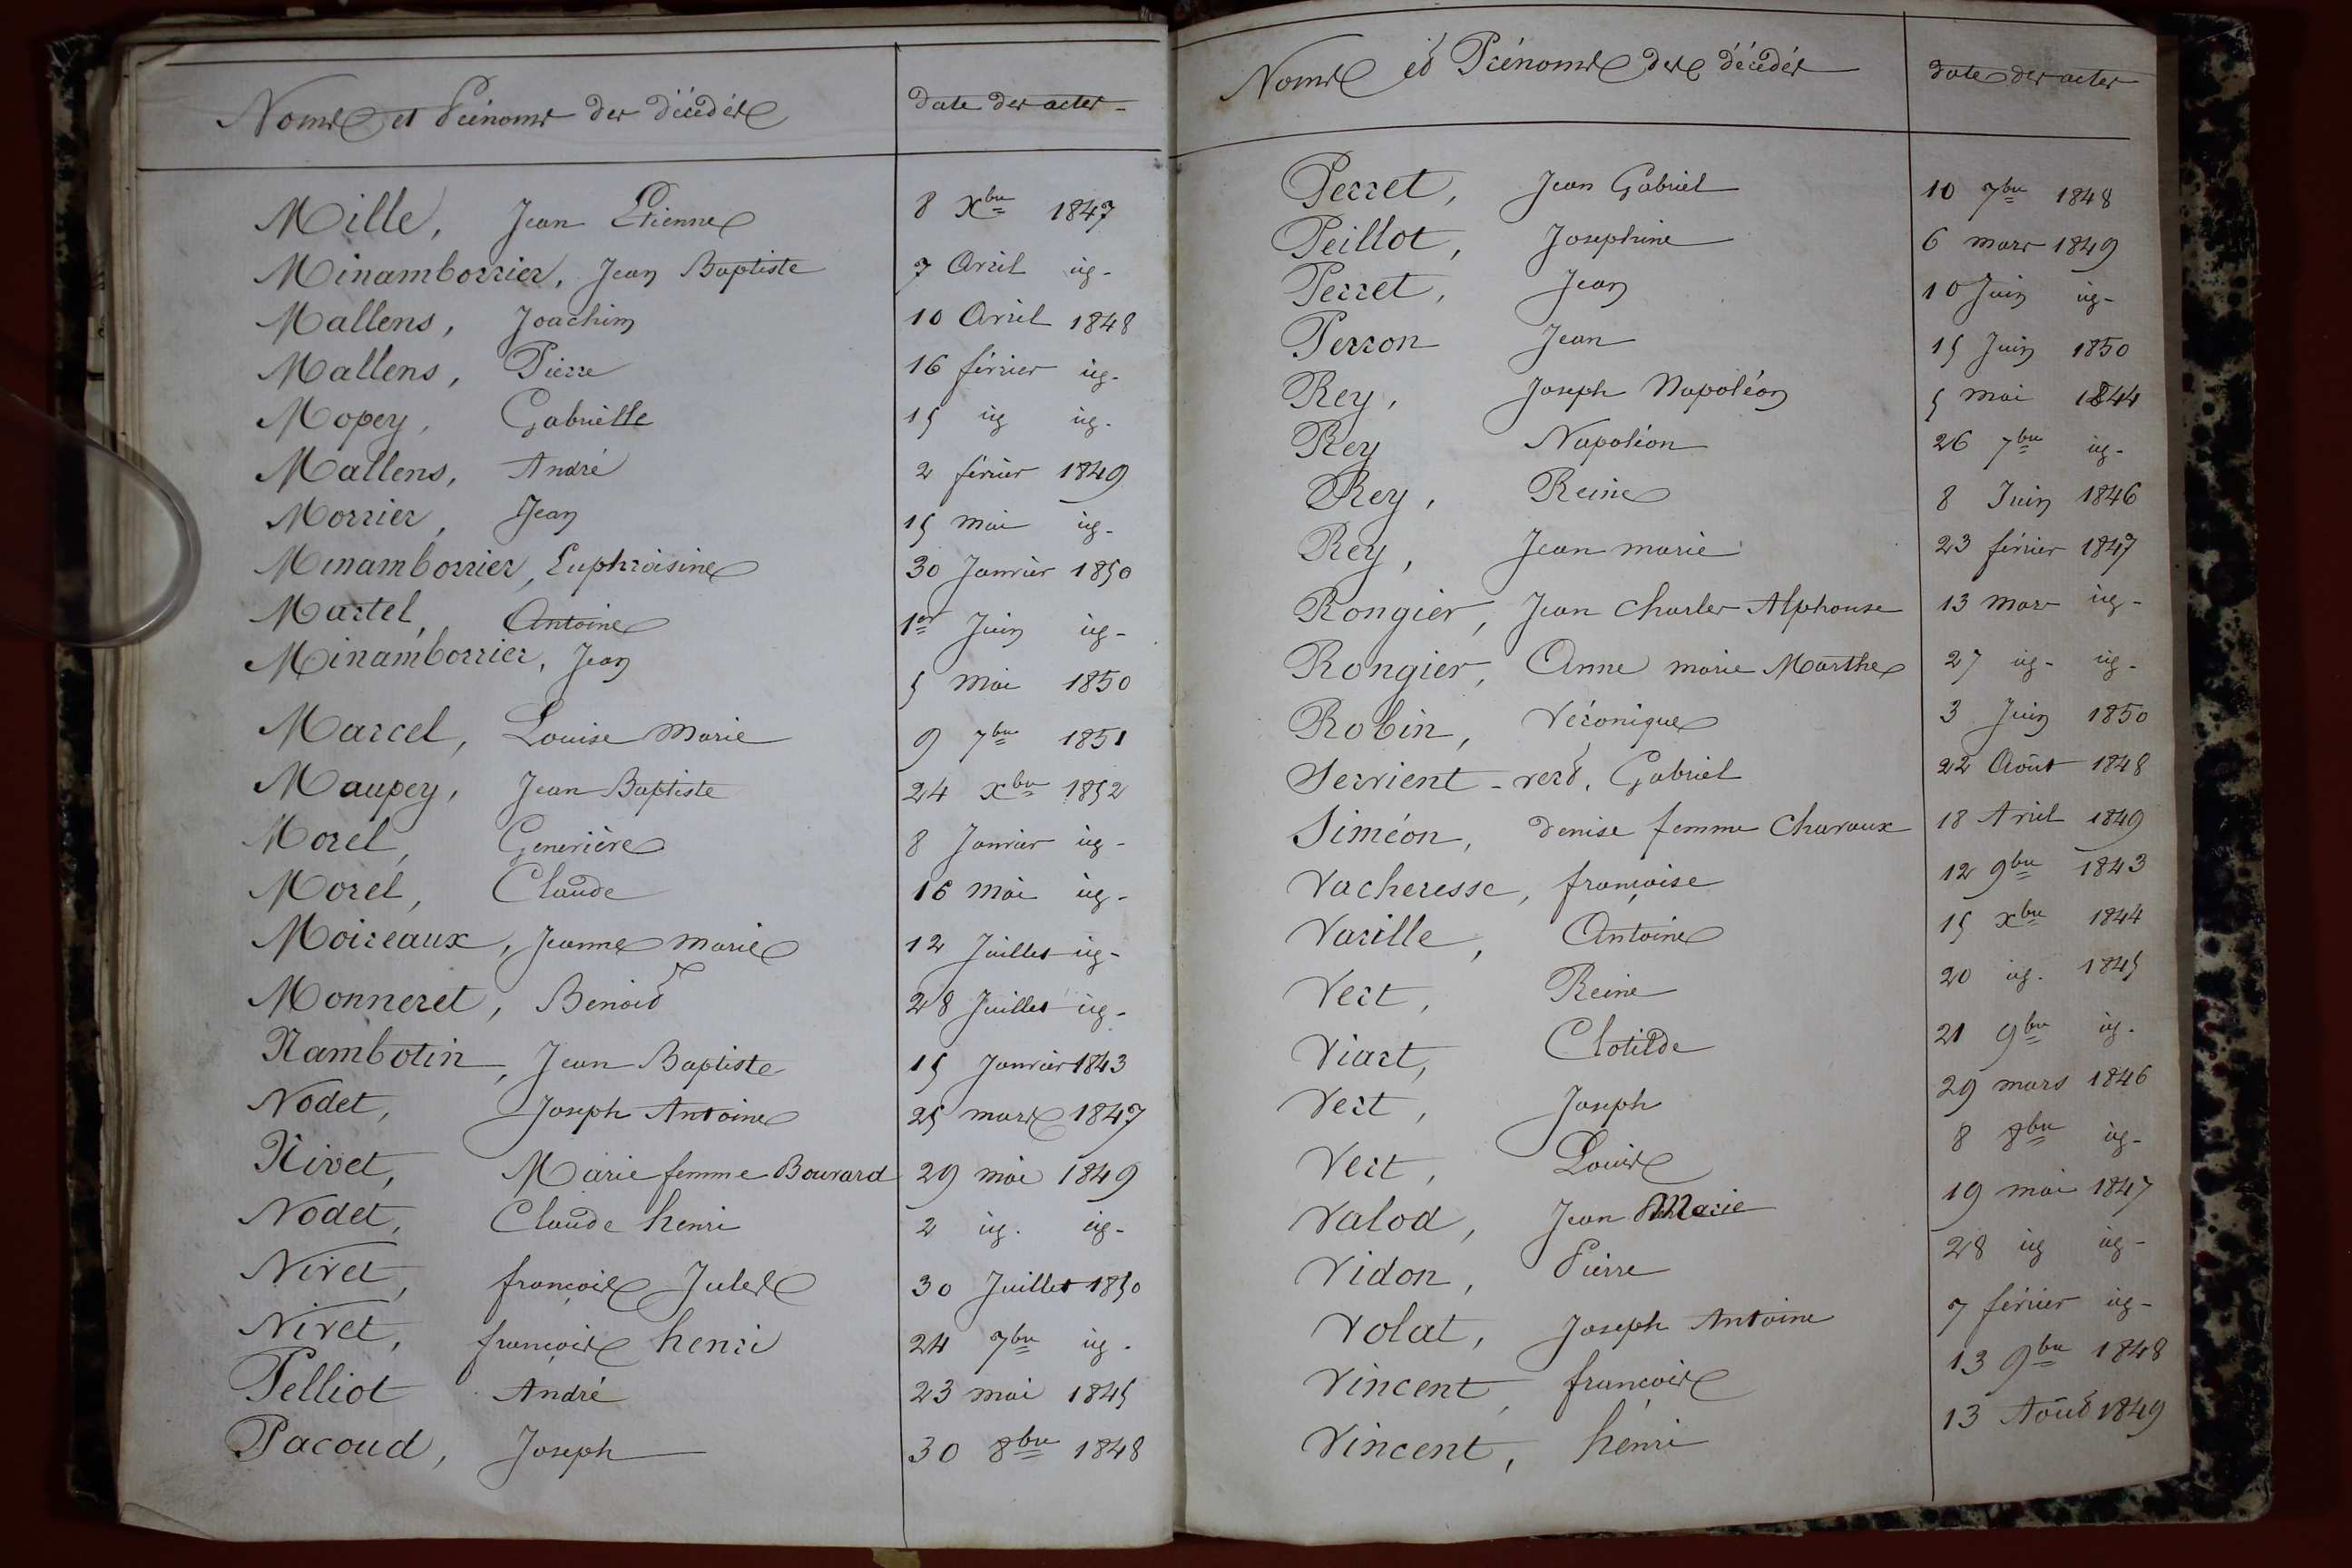 Noms et Prénoms des décédés date des actes
Mille, Jean Etienne 8 Xbre 1847
Minamborrier, Jean Baptiste 7 Avril ig-
Mallens, Joachim 10 Avril 1848
Mallens, Pierre 16 février ig-
Mopey, Gabrielle 15 ig ig-
Mallens, André 2 février 1849
Morrier, Jean 15 mai ig-
Minamborrier, Euphroisine 30 Janvier 1850
Martel, Antoine 1er Juin ig-
Minamborrier, Jean 5 Mai 1850
Marcel, Louise Marie 9 7bre 1851
Maupey, Jean Baptiste 24 Xbre 1852
Morel, Geneviève 8 Janvier ig-
Morel, Claude 16 Mai ig-
Moireaux, Jeanne Marie 12 Juillet ig-
Monneret, Benoit 28 Juillet ig-
Nambotin, Jean Baptiste 15 Janvier 1843
Nodet, Joseph Antoine 25 mars 1847
Nivet, Marie femme Bouvard 29 mai 1849
Nodet, Claude henri 2 ig. ig-
Nivet, françois Jules 30 Juillet 1850
Nivet, françois henri 24 7bre ig-
Pelliot André 23 mai 1845
Pacoud, Joseph 30 8bre 1848
Noms et Prénoms des décédés date des actes
Perret, Jean Gabriel 10 7bre 1848
Peillot, Josephine 6 mars 1849
Perret, Jean 10 Juin ig-
Perron Jean 15 Juin 1850
Rey, Joseph Napoléon 5 mai 1844
Rey Napoléon 26 7bre ig-
Rey, Reine 8 Juin 1846
Rey, Jean marie 23 février 1847
Rongier, Jean Charles Alphonse 13 mars ig-
Rongier, Anne marie Marthe 27 ig- ig-
Robin, Véronique 3 Juin 1850
Servient-verd, Gabriel 22 Août 1848
Siméon, denise femme Charaux 18 Avril 1849
Vacheresse, françoise 12 9bre 1843
Varille, Antoine 15 Xbre 1844
Vert, Reine 20 ig. 1845
Viart, Clotilde 21 9bre ig-
Vert, Joseph 29 mars 1846
Vert, Louis 8 8bre ig-
Valod, Jean Marie 19 mai 1847
Vidon, Pierre 28 ig ig-
Volat, Joseph Antoine 7 février ig-
Vincent, françois 13 9bre 1848
Vincent, henri 13 Août 1849